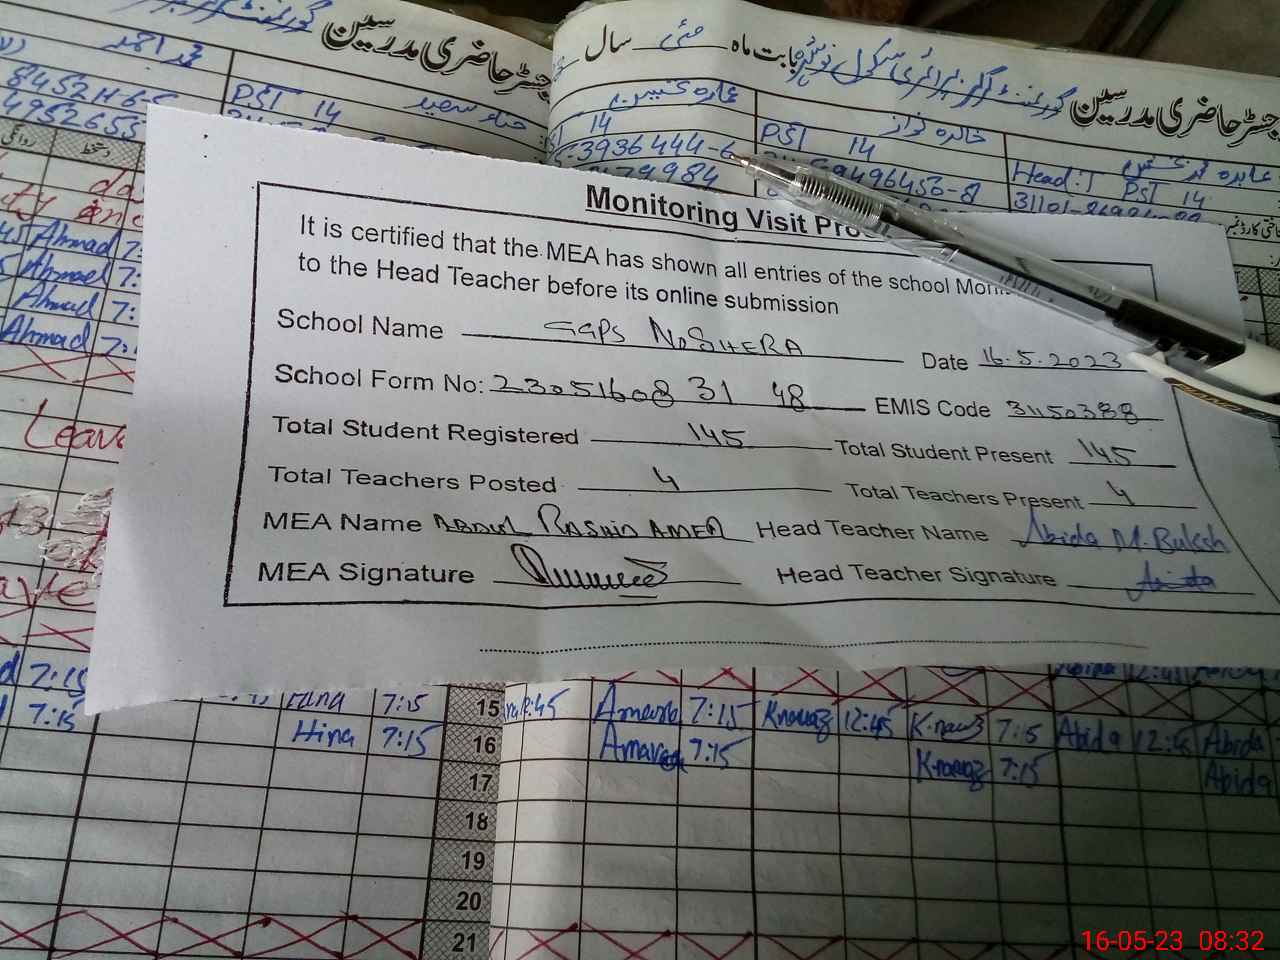 رجسٹر حاضری مدرسین
محمد احمد
PST 14
حناء سعید
8452116
4952655
رجسٹر حاضری مدرسین گورنمنٹ گرلز پرائمری سکول بابت ماہ مئی سال
14
PST 14
خالدہ نواز
Head:T PST 14
-3936444-6
9496456-8
31101-
79984
دستخط
روانگی
Monitoring Visit
It is certified that the MEA has shown all entries of the school
to the Head Teacher before its online submission
School Name GGPS NOSHERA Date 16.5.2023
School Form No: 2305160831 48 EMIS Code 31150388
Total Student Registered 145 Total Student Present 145
Total Teachers Posted 4 Total Teachers Present 4
MEA Name ABDUL RASHID AMEA Head Teacher Name Abida M.Buksh
MEA Signature Head Teacher Signature Abida
Ahmad 7:
Ahmad 7:
Ahmad 7:
Ahmad 7:
Leave
7:15 7:15 15 12:45 7:15 Knawaz 12:45 K.nawaz 7:15 Abida 12:45 Abida
7:15 Hina 7:15 16 7:15 K.nawaz 7:15 Abida
17
18
19
20
21
16-05-23 08:32